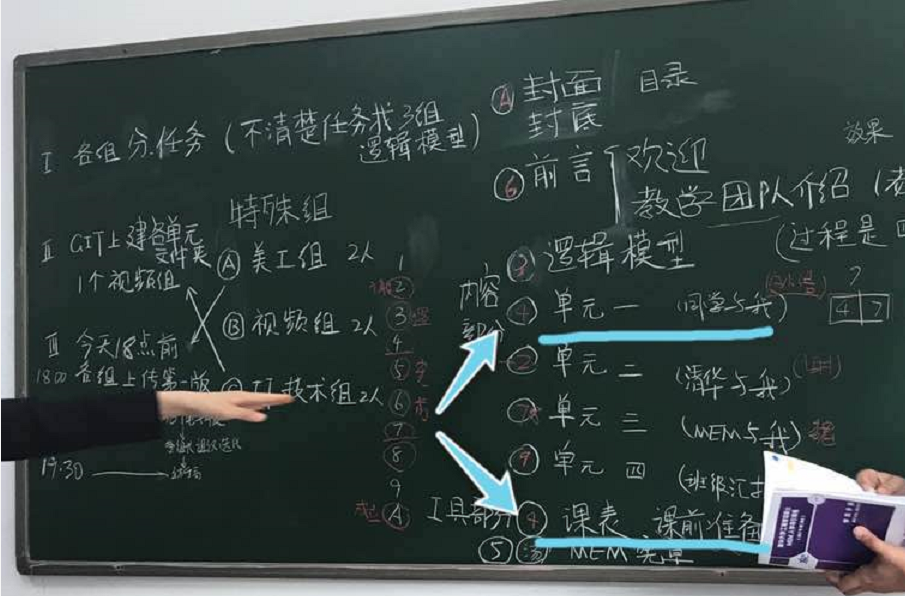 I 各组分任务(不清楚任务找3组
逻辑模型)
II GIT上建各单元
文件夹
1个视频组
III 今天18点前
1800 各组上传第一版
19:30
特殊组
A 美工组 2人
B 视频组 2人
技术组2人
1
2
3
4
5
6
7
8
9
A
A 封面 目录
封底
6 前言 欢迎
教学团队介绍
(过程是
3 逻辑模型
内容
部分
4 单元一 (同学与我)
2 单元二 (清华与我)
7 单元三 (MEM与我)
9 单元四 (班级汇
工具部分 4 课表 课前准备
5 MEM
效果
?
4 7